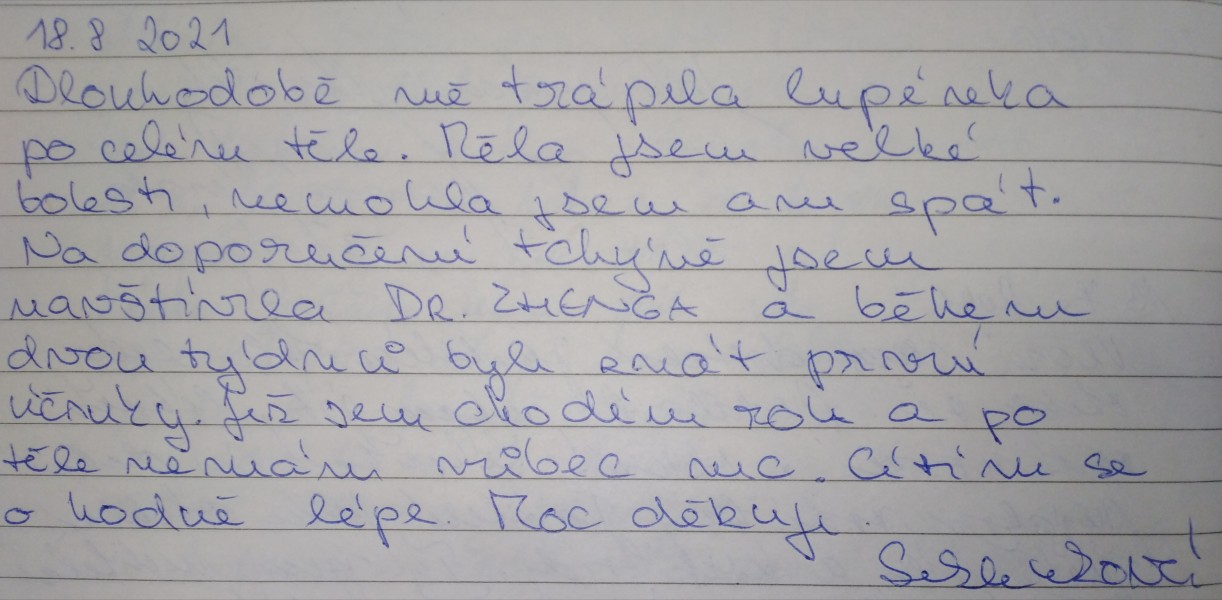 18.8 2021
Dlouhodobě mě trápila lupénka
po celém těle. Měla jsem velké
bolesti, nemohla jsem ani spát.
Na doporučení tchýně jsem
navštívila DR. ZHENGA a během
dvou týdnů byli znát první
účinky. Již sem chodím rok a po
těle nemám vůbec nic. Cítím se
o hodně lépe. Moc děkuji.